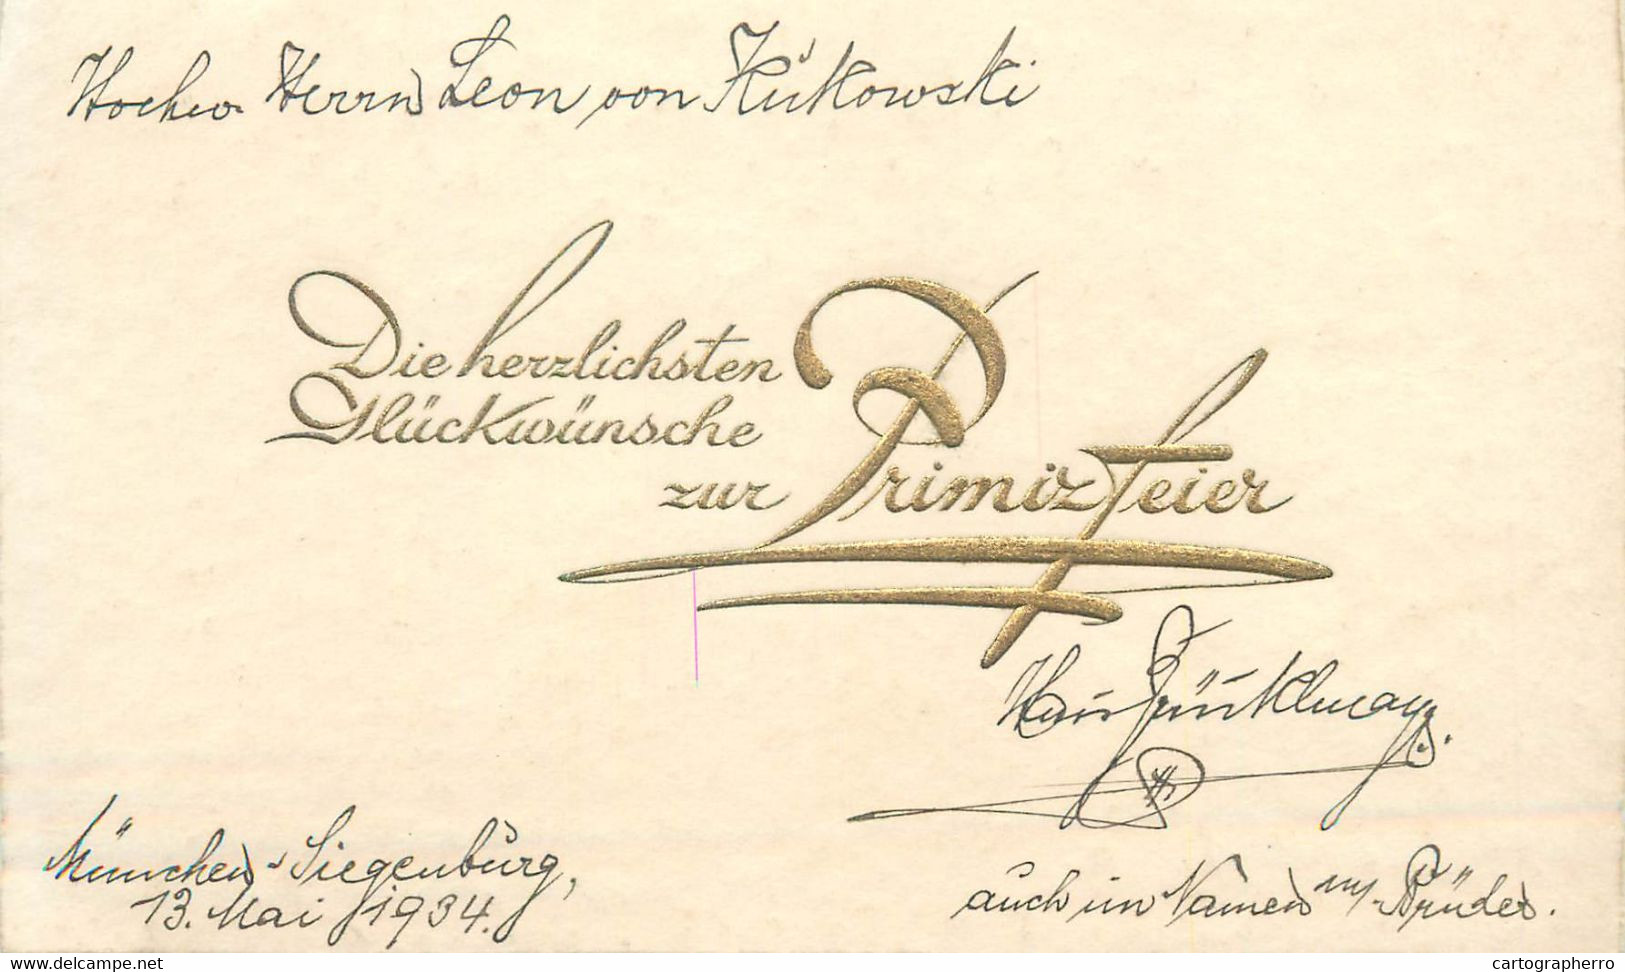 Hochw. Herrn Leon von Kutkowski
Die herzlichsten
Glückwünsche
zur Primizfeier
Hans
München-Siegenburg,
13. Mai 1934.
auch im Namen m/ Brüder.
www.delcampe.net
cartographerro